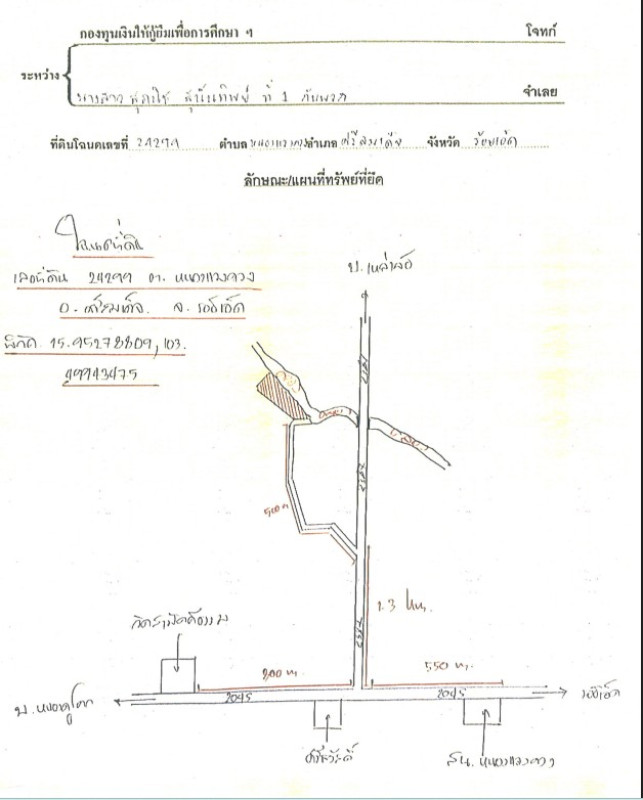 กองทุนเงินให้กู้ยืมเพื่อการศึกษา ฯ โจทก์
ระหว่าง
นางสาว ที่ 1 กับพวก จำเลย
ที่ดินโฉนดเลขที่ 24299 ตำบล หนองแวงควง อำเภอ ศรีสมเด็จ จังหวัด ร้อยเอ็ด
ลักษณะ/แผนที่ทรัพย์ที่ยึด
โฉนดที่ดิน
เลขที่ดิน 24299 ต. หนองแวงควง
อ. ศรีสมเด็จ จ. ร้อยเอ็ด
พิกัด 15.95278809, 103.
49943475
บ. เหล่าล้อ
500 ม
2.3 กม.
200 ม.
550 ม.
2045
2045
บ. หนองโดก
ร้อยเอ็ด
ศรีสวัสดิ์
สน. หนองแวงควง